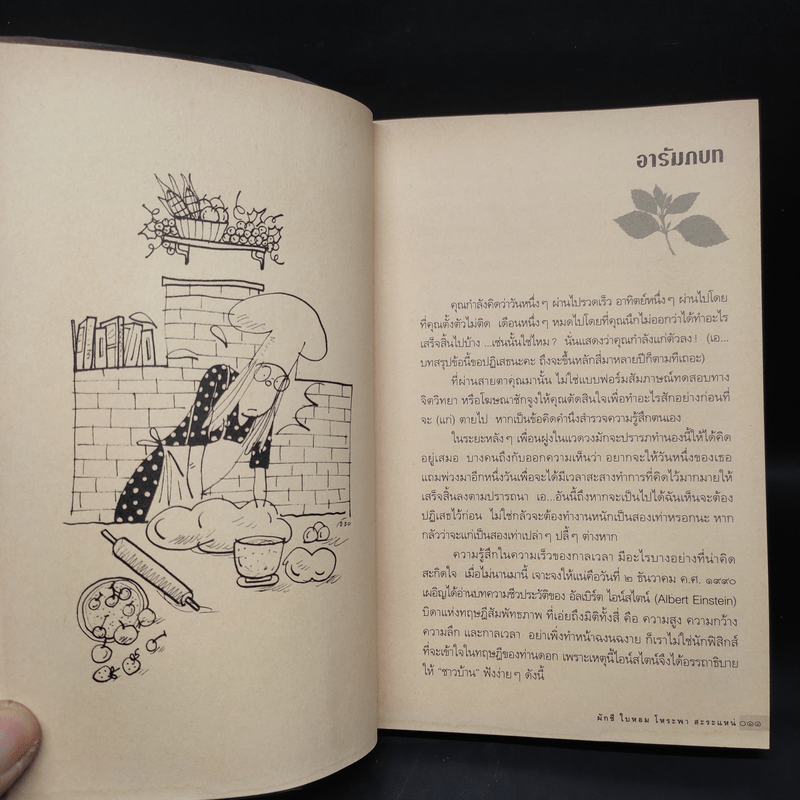 อารัมภบท
คุณกำลังคิดว่าวันหนึ่งๆ ผ่านไปรวดเร็ว อาทิตย์หนึ่งๆ ผ่านไปโดย
ที่คุณตั้งตัวไม่ติด เดือนหนึ่งๆ หมดไปโดยที่คุณนึกไม่ออกว่าได้ทำอะไร
เสร็จสิ้นไปบ้าง ...เช่นนั้นใช่ไหม? นั่นแสดงว่าคุณกำลังแก่ตัวลง! (เอ...
บทสรุปข้อนี้ขอปฏิเสธนะคะ ถึงจะขึ้นหลักสี่มาหลายปีก็ตามทีเถอะ)
ที่ผ่านสายตาคุณมานั้น ไม่ใช่แบบฟอร์มสัมภาษณ์ทดสอบทาง
จิตวิทยา หรือโฆษณาชักจูงให้คุณตัดสินใจเพื่อทำอะไรสักอย่างก่อนที่
จะ (แก่) ตายไป หากเป็นข้อคิดคำนึงสำรวจความรู้สึกตนเอง
ในระยะหลังๆ เพื่อนฝูงในแวดวงมักจะปรารภทำนองนี้ให้ได้คิด
อยู่เสมอ บางคนถึงกับออกความเห็นว่า อยากจะให้วันหนึ่งของเธอ
แถมพ่วงมาอีกหนึ่งวันเพื่อจะได้มีเวลาสะสางทำการที่คิดไว้มากมายให้
เสร็จสิ้นลงตามปรารถนา เอ...อันนี้ถึงหากจะเป็นไปได้ฉันเห็นจะต้อง
ปฏิเสธไว้ก่อน ไม่ใช่กลัวจะต้องทำงานหนักเป็นสองเท่าหรอกนะ หาก
กลัวว่าจะแก่เป็นสองเท่าเปล่าๆ ปลี้ๆ ต่างหาก
ความรู้สึกในความเร็วของกาลเวลา มีอะไรบางอย่างที่น่าคิด
สะกิดใจ เมื่อไม่นานมานี้ เจาะจงให้แน่คือวันที่ ๒ ธันวาคม ค.ศ. ๑๙๙๐
เผอิญได้อ่านบทความชีวประวัติของ อัลเบิร์ต ไอน์สไตน์ (Albert Einstein)
บิดาแห่งทฤษฎีสัมพัทธภาพ ที่เอ่ยถึงมิติทั้งสี่ คือ ความสูง ความกว้าง
ความลึก และกาลเวลา อย่าเพิ่งทำหน้าฉงนฉงาย ก็เราไม่ใช่นักฟิสิกส์
ที่จะเข้าใจในทฤษฎีของท่านดอก เพราะเหตุนี้ไอน์สไตน์จึงได้อรรถาธิบาย
ให้ "ชาวบ้าน" ฟังง่ายๆ ดังนี้
ผักชี ใบหอม โหระพา สะระแหน่ ๐๑๑